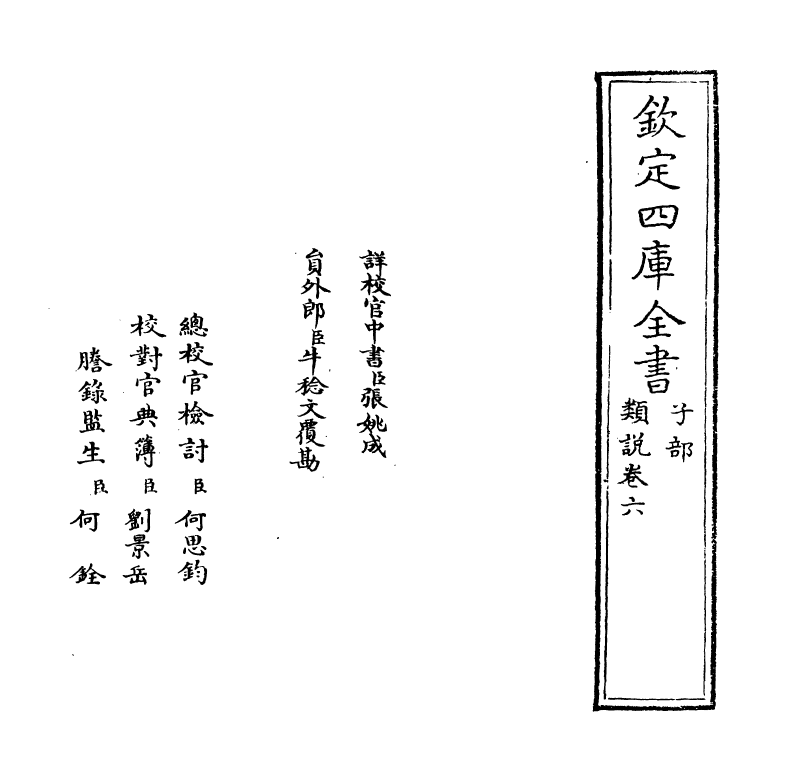 欽定四庫全書
子部
類說卷六
詳校官中書臣張姚成
員外郎臣牛稔文覆勘
總校官檢討臣何思鈞
校對官典簿臣劉景岳
謄錄監生臣何銓